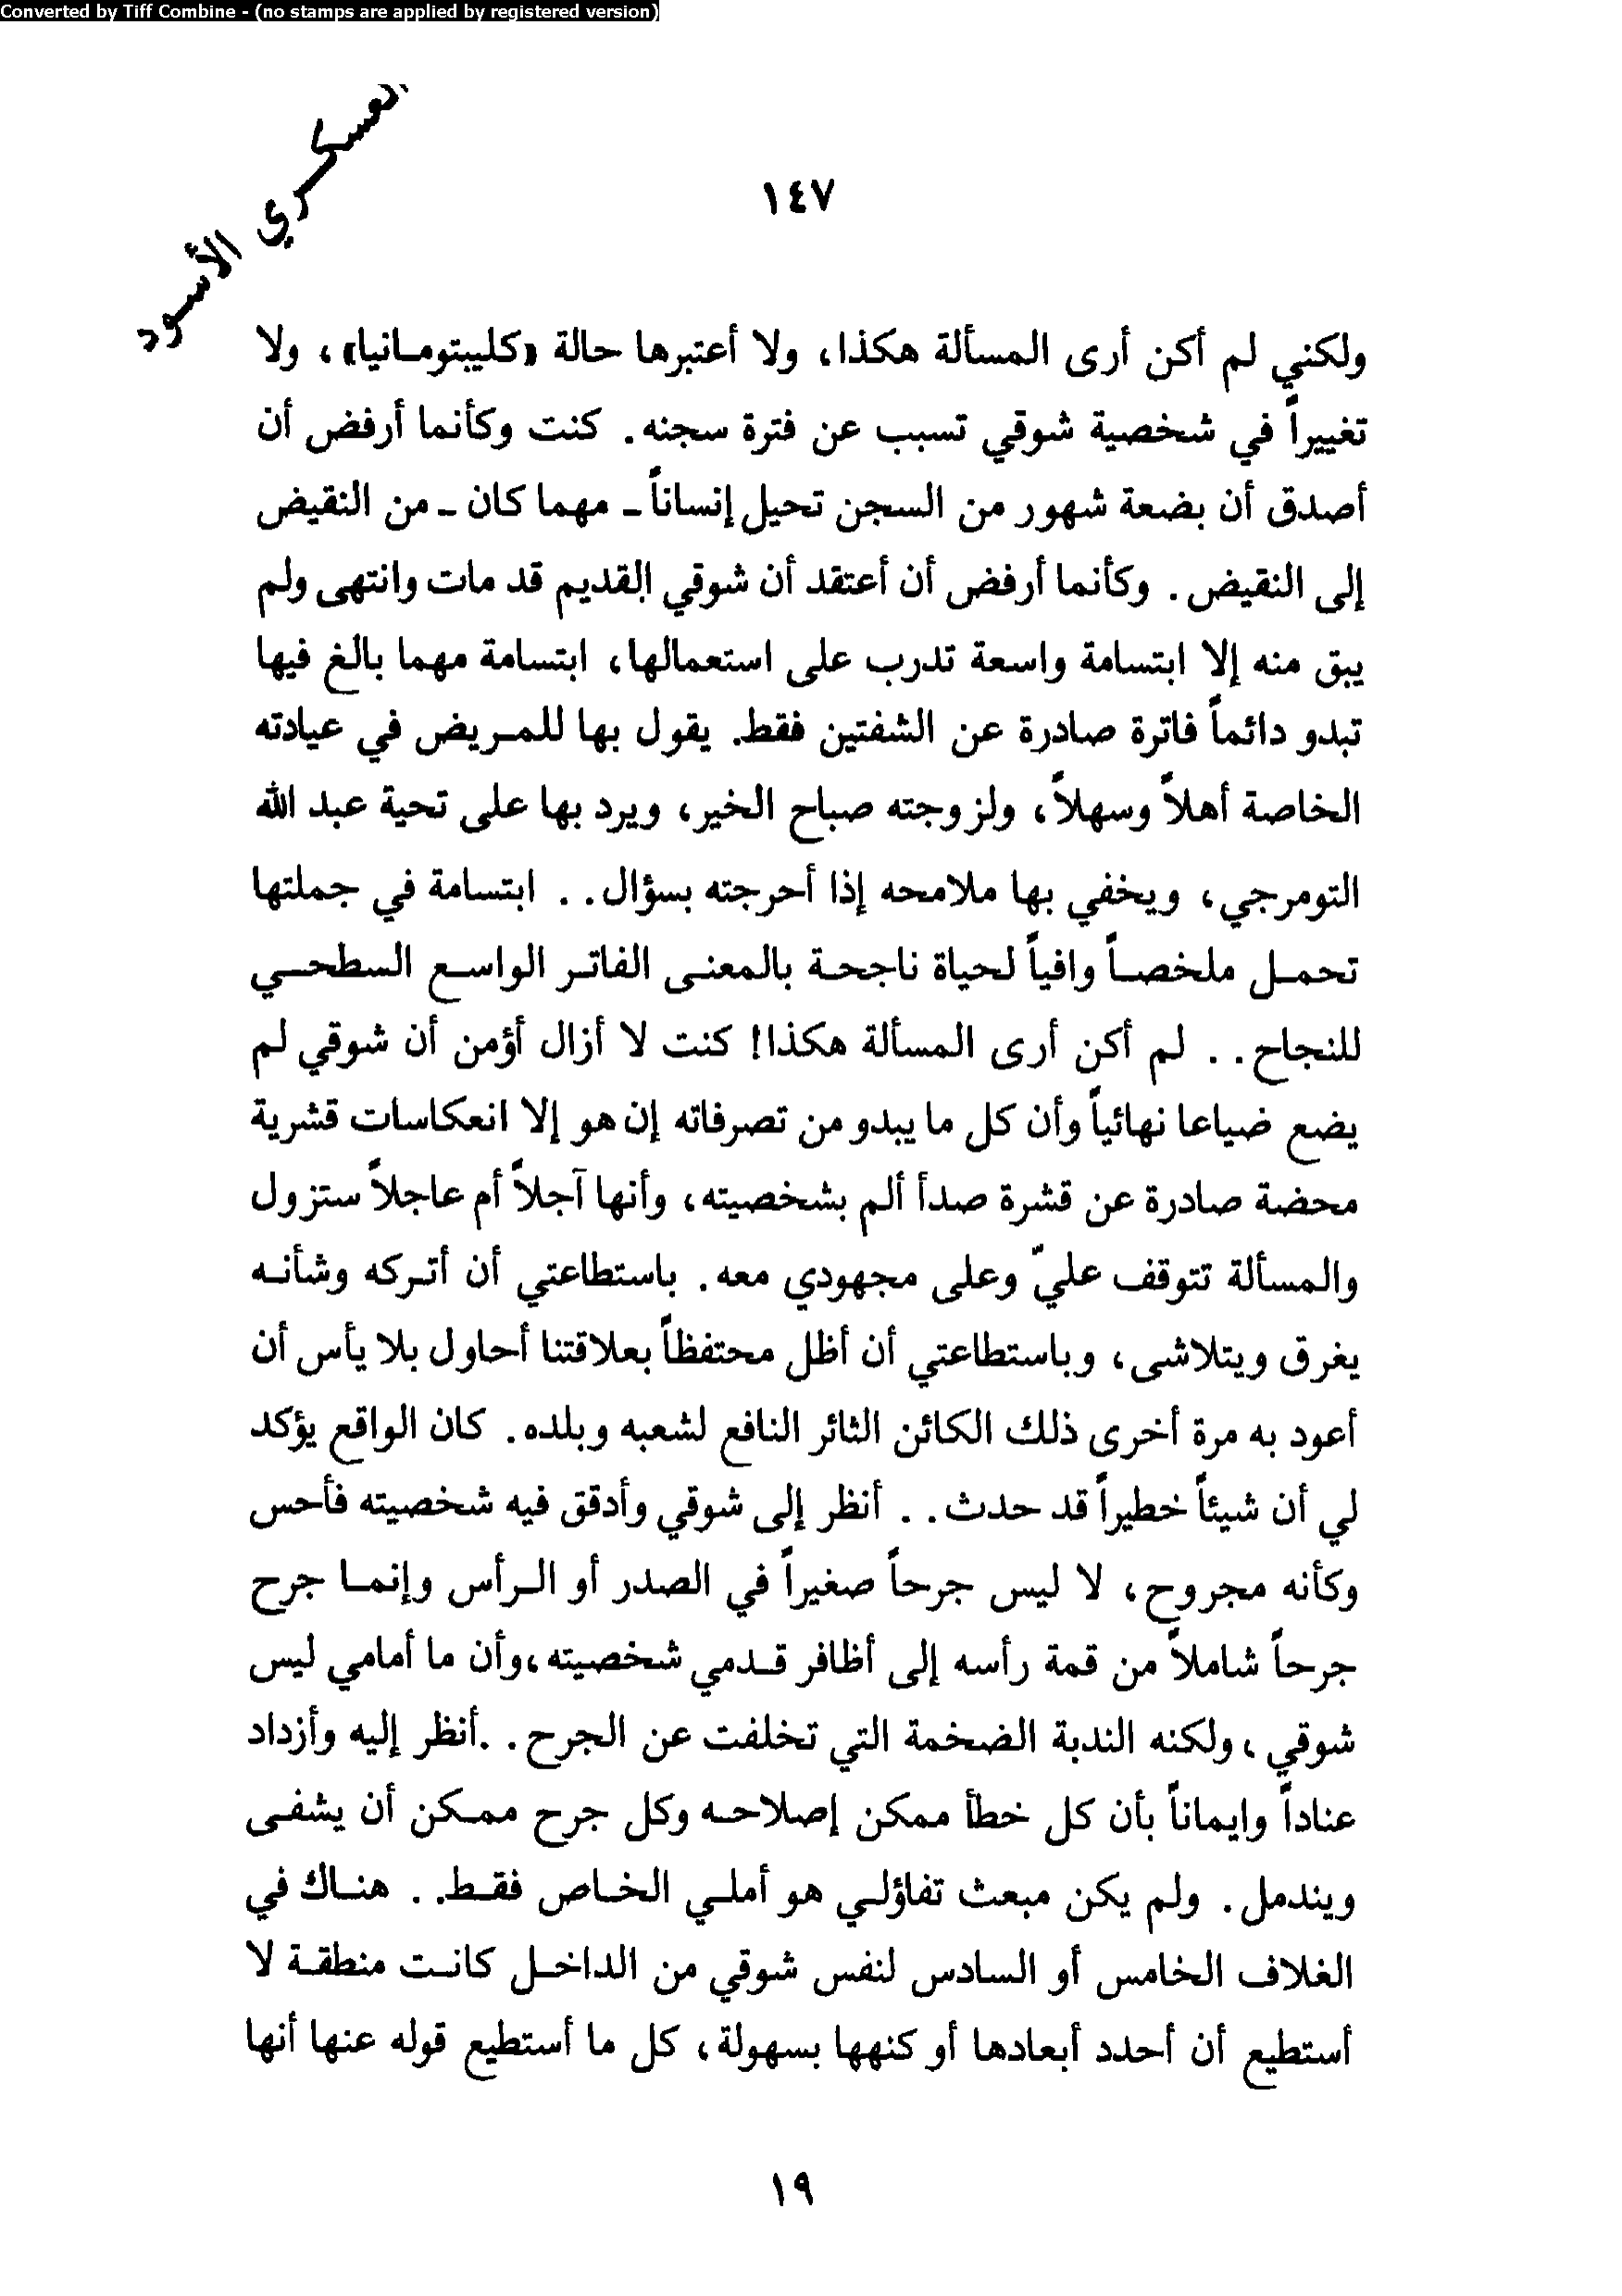 Converted by Tiff Combine - (no stamps are applied by registered version)
العسكري الأسود
١٤٧
ولكني لم أكن أرى المسألة هكذا، ولا أعتبرها حالة «كليبتومـانيا»، ولا
تغييراً في شخصية شوقي تسبب عن فترة سجنه. كنت وكأنما أرفض أن
أصدق أن بضعة شهور من السجن تحيل إنساناً ـ مهما كان ـ من النقيض
إلى النقيض. وكأنما أرفض أن أعتقد أن شوقي القديم قد مات وانتهى ولم
يبق منه إلا ابتسامة واسعة تدرب على استعمالها، ابتسامة مهما بالغ فيها
تبدو دائماً فاترة صادرة عن الشفتين فقط. يقول بها للمـريض في عيادته
الخاصة أهلاً وسهلاً، ولزوجته صباح الخير، ويرد بها على تحية عبد الله
التومرجي، ويخفي بها ملامحه إذا أحرجته بسؤال.. ابتسامة في جملتها
تحمـل ملخصـاً وافياً لحياة ناجحـة بالمعنـى الفاتـر الواسـع السطحـي
للنجاح.. لم أكن أرى المسألة هكذا! كنت لا أزال أؤمن أن شوقي لم
يضع ضياعا نهائياً وأن كل ما يبدو من تصرفاته إن هو إلا انعكاسات قشرية
محضة صادرة عن قشرة صدأ ألم بشخصيته، وأنها آجلاً أم عاجلاً ستزول
والمسألة تتوقف عليّ وعلى مجهودي معه. باستطاعتي أن أتـركه وشأنـه
يغرق ويتلاشى، وباستطاعتي أن أظل محتفظاً بعلاقتنا أحاول بلا يأس أن
أعود به مرة أخرى ذلك الكائن الثائر النافع لشعبه وبلده. كان الواقع يؤكد
لي أن شيئاً خطيراً قد حدث.. أنظر إلى شوقي وأدقق فيه شخصيته فأحس
وكأنه مجروح، لا ليس جرحاً صغيراً في الصدر أو الـرأس وإنمـا جرح
جرحاً شاملاً من قمة رأسه إلى أظافر قـدمي شخصيته،وأن ما أمامي ليس
شوقي،ولكنه الندبة الضخمة التي تخلفت عن الجرح..أنظر إليه وأزداد
عناداً وايماناً بأن كل خطأ ممكن إصلاحـه وكل جرح ممـكن أن يشفـى
ويندمل. ولم يكن مبعث تفاؤلـي هو أملـي الخـاص فقـط.. هنـاك في
الغلاف الخامس أو السادس لنفس شوقي من الداخـل كانـت منطقـة لا
أستطيع أن أحدد أبعادها أو كنهها بسهولة، كل ما أستطيع قوله عنها أنها
١٩